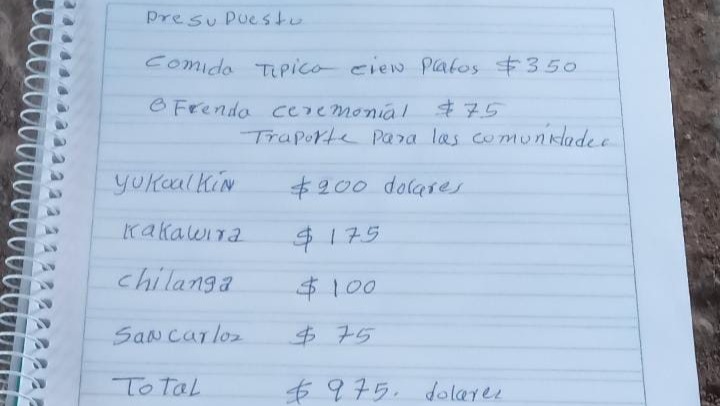 Presupuesto
Comida Tipica cien Platos $350
OFrenda ceremonial $75
Traporte Para las comunidades
Yukoalkin $200 dolares
Kakawira $175
chilanga $100
San carloz $75
ToTaL $975. dolares